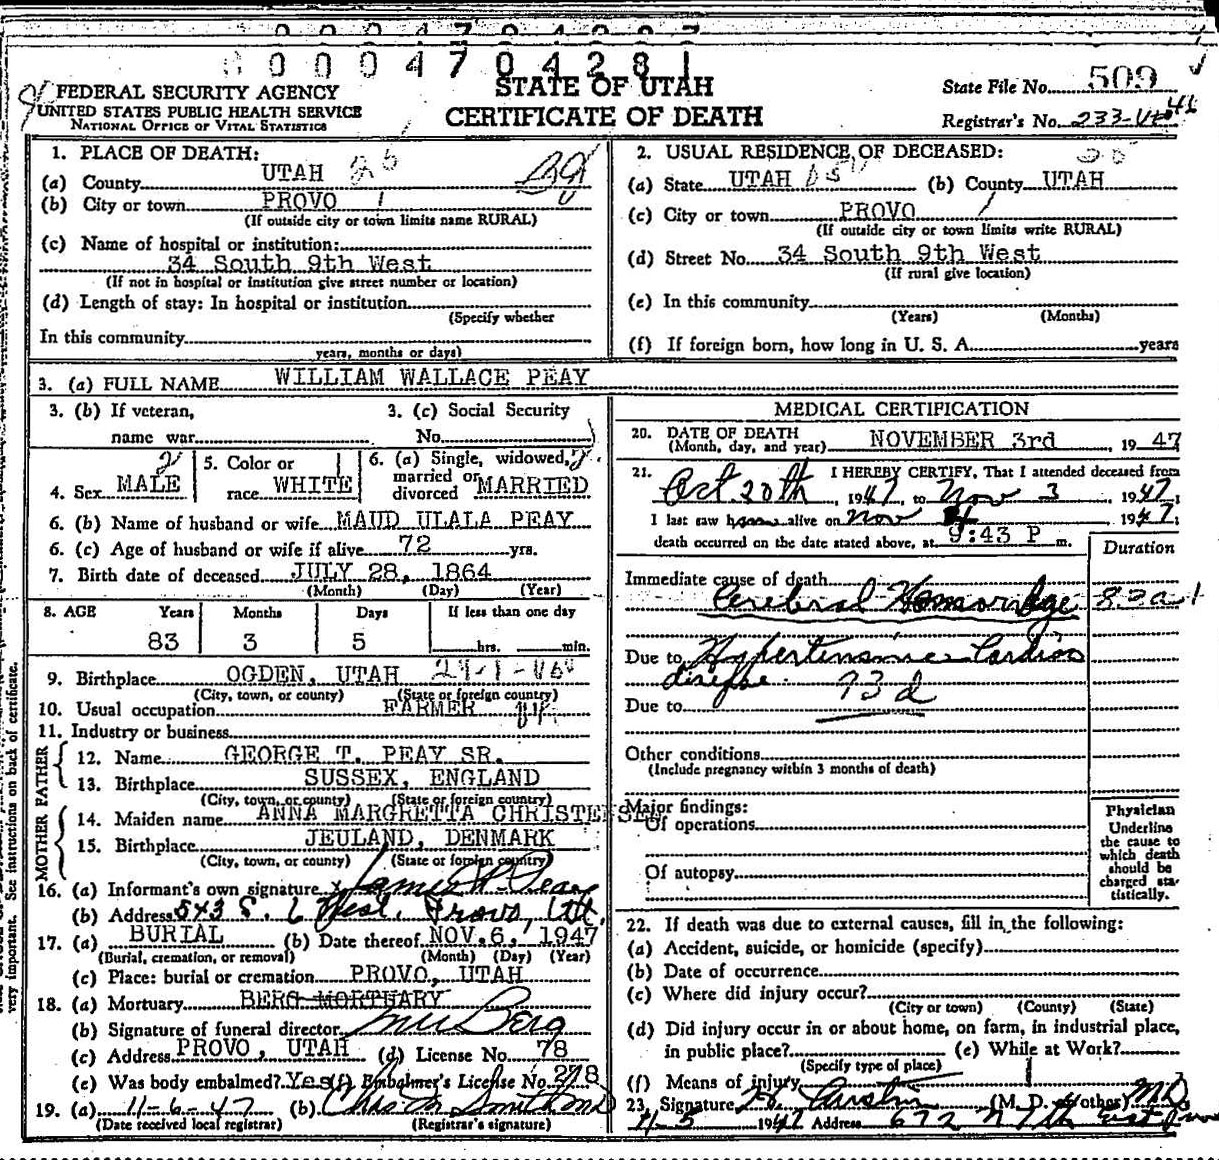 000470428
FEDERAL SECURITY AGENCY
UNITED STATES PUBLIC HEALTH SERVICE
NATIONAL OFFICE OF VITAL STATISTICS
STATE OF UTAH
CERTIFICATE OF DEATH
State File No. 509
Registrar's No. 233-
1. PLACE OF DEATH:
(a) County UTAH
(b) City or town PROVO
(If outside city or town limits name RURAL)
(c) Name of hospital or institution:
34 South 9th West
(If not in hospital or institution give street number or location)
(d) Length of stay: In hospital or institution
(Specify whether
In this community
years, months or days)
2. USUAL RESIDENCE OF DECEASED:
(a) State UTAH (b) County UTAH
(c) City or town PROVO
(If outside city or town limits write RURAL)
(d) Street No. 34 South 9th West
(If rural give location)
(e) In this community
(Years) (Months)
(f) If foreign born, how long in U. S. A. years
3. (a) FULL NAME WILLIAM WALLACE PEAY
3. (b) If veteran,
name war
3. (c) Social Security
No.
4. Sex MALE
5. Color or
race WHITE
6. (a) Single, widowed,
married or
divorced MARRIED
6. (b) Name of husband or wife MAUD ULALA PEAY
6. (c) Age of husband or wife if alive 72 yrs.
7. Birth date of deceased JULY 28, 1864
(Month) (Day) (Year)
8. AGE Years Months Days If less than one day
83 3 5 hrs. min.
9. Birthplace OGDEN, UTAH
(City, town, or county) (State or foreign country)
10. Usual occupation FARMER
11. Industry or business
FATHER
12. Name GEORGE T. PEAY SR.
13. Birthplace SUSSEX, ENGLAND
(City, town, or county) (State or foreign country)
MOTHER
14. Maiden name ANNA MARGRETTA CHRISTENSEN
15. Birthplace JEULAND, DENMARK
(City, town, or county) (State or foreign country)
16. (a) Informant's own signature James Peay
(b) Address 543 S. 6 West. Provo, Ut.
17. (a) BURIAL (b) Date thereof NOV. 6, 1947
(Burial, cremation, or removal) (Month) (Day) (Year)
(c) Place: burial or cremation PROVO, UTAH
18. (a) Mortuary BERG MORTUARY
(b) Signature of funeral director Berg
(c) Address PROVO, UTAH (d) License No. 78
(e) Was body embalmed? Yes (f) Embalmer's License No. 278
19. (a) 11-6-47 (b) Chas M Smith MD
(Date received local registrar) (Registrar's signature)
MEDICAL CERTIFICATION
20. DATE OF DEATH
(Month, day, and year) NOVEMBER 3rd, 1947
21. I HEREBY CERTIFY, That I attended deceased from
Oct 20th, 1947, to Nov 3 1947;
I last saw him alive on Nov 1947;
death occurred on the date stated above, at 9:43 P m.
Duration
Immediate cause of death
Cerebral Hemorrhage
Due to Hypertensive Cardio
disease.
Due to
Other conditions
(Include pregnancy within 3 months of death)
Major findings:
Of operations
Of autopsy
Physician
Underline
the cause to
which death
should be
charged sta-
tistically.
22. If death was due to external causes, fill in the following:
(a) Accident, suicide, or homicide (specify)
(b) Date of occurrence
(c) Where did injury occur?
(City or town) (County) (State)
(d) Did injury occur in or about home, on farm, in industrial place,
in public place? (e) While at Work?
(Specify type of place)
(f) Means of injury
23. Signature (M. D. or other) MD
11-5 1947 Address 672 N
very important. See instructions on back of certificate.